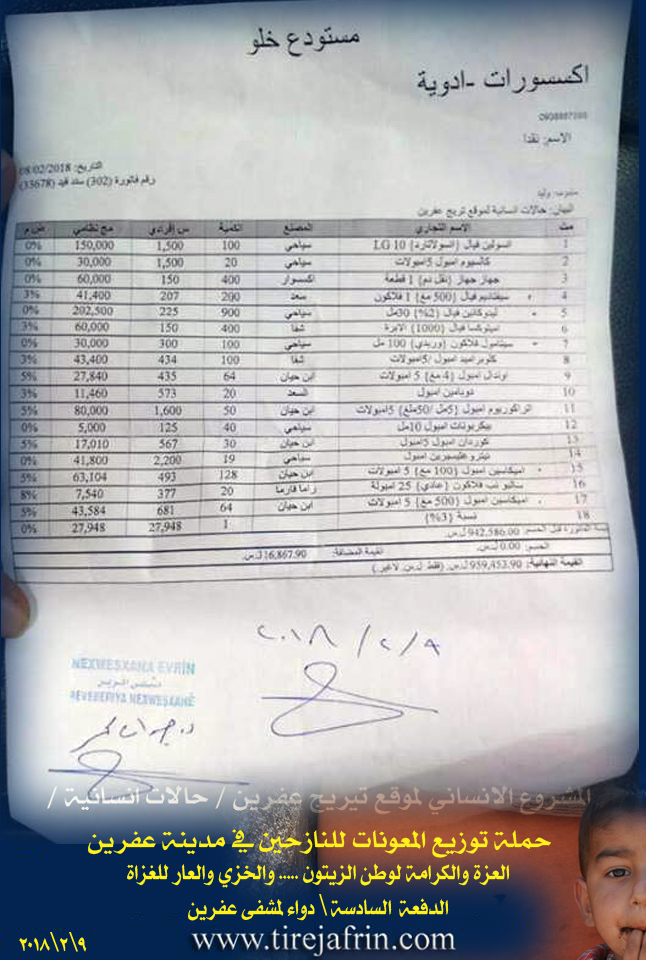 مستودع خلو
اكسسورات - ادوية
الاسم: نقدا
التاريخ: 08/02/2018
رقم فاتورة (302) سند قيد (33678)
البيان: حالات انسانية لموقع تيريج عفرين
مت الاسم التجاري المصنع الكمية س إفرادي مج نظامي ض م
1 انسولين فيال (انسولاتارد) LG 10 سياحي 100 1,500 150,000 0%
2 كالسيوم امبول 5امبولات سياحي 20 1,500 30,000 0%
3 جهاز جهاز (نقل دم) 1 قطعة اكسسوار 400 150 60,000 0%
4 سيفتازيم فيال (500 مغ) 1 فلاكون سعد 200 207 41,400 3%
5 ليدوكائين فيال (2%) 30مل سياحي 900 225 202,500 0%
6 (1000) الابرة شفا 400 150 60,000 3%
7 سيتامول فلاكون (وريدي) 100 مل سياحي 100 300 30,000 0%
8 كلوبراميد امبول /5امبولات شفا 100 434 43,400 3%
9 اوندال امبول (4 مغ) 5 امبولات ابن حيان 64 435 27,840 5%
10 دوبامين امبول السعد 20 573 11,460 3%
11 اتراكوريوم امبول (5مل /50ملغ) 5امبولات ابن حيان 50 1,600 80,000 5%
12 بيكربونات امبول 10مل سياحي 40 125 5,000 0%
13 كوردان امبول 5امبول ابن حيان 30 567 17,010 5%
14 نيتروغليسيرين امبول سياحي 19 2,200 41,800 0%
15 اميكاسين امبول (100 مغ) 5 امبولات ابن حيان 128 493 63,104 5%
16 فلاكون (عادي) 25 امبولة راما فارما 20 377 7,540 8%
17 اميكاسين امبول (500 مغ) 5 امبولات ابن حيان 64 681 43,584 5%
18 نسبة (3%) 1 27,948 27,948 0%
قيمة الفاتورة قبل الحسم: 942,586.00 ل.س.
الحسم: 0.00 ل.س. القيمة المضافة: 16,867.90 ل.س.
القيمة النهائية: 959,453.90 ل.س. (فقط ل.س. لاغير.)
٢٠١٨/٢/٨
NEXWEŞXANA EVRÎN
REVEBERIYA NEXWEŞXANÊ
المشروع الانساني لموقع تيريج عفرين / حالات انسانية /
حملة توزيع المعونات للنازحين في مدينة عفرين
العزة والكرامة لوطن الزيتون ..... والخزي والعار للغزاة
الدفعة السادسة \ دواء لمشفى عفرين
٢٠١٨\٢\٩
www.tirejafrin.com